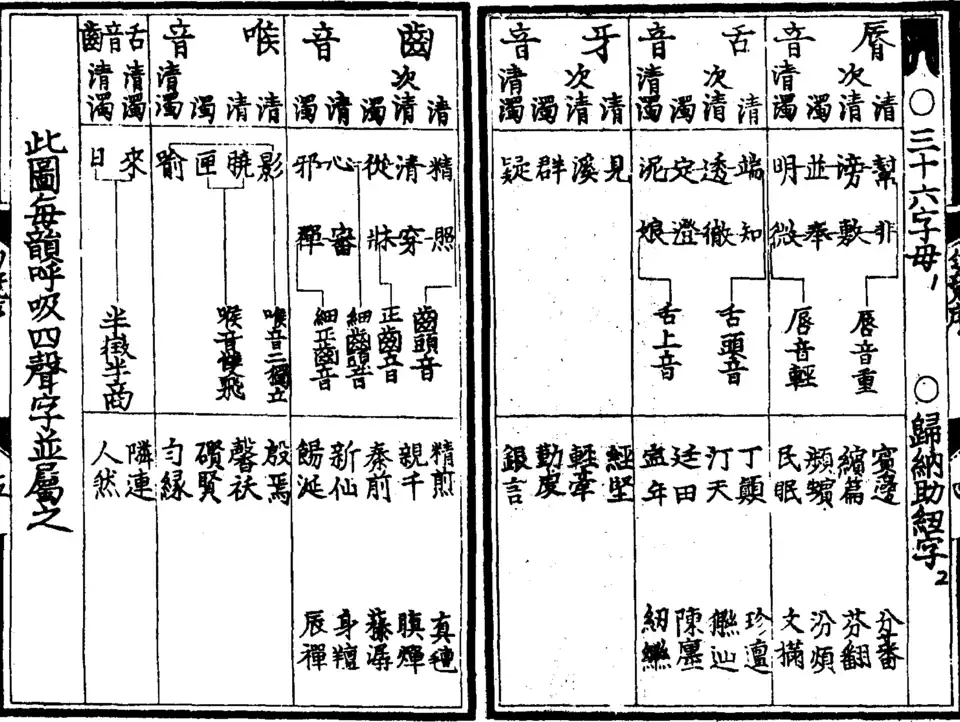 ○三十六字母1 ○歸納助紐字2
脣音 舌音 牙音
清 次清 濁 清濁 清 次清 濁 清濁 清 次清 濁 清濁
幫 滂 並 明 端 透 定 泥 見 溪 群 疑
非 敷 奉 微 知 徹 澄 娘
脣音重 脣音輕 舌頭音 舌上音
賓邊 繽篇 頻蠙 民眠 丁顛 汀天 廷田 年 經堅 輕牽 勤虔 銀言
分番 芬翻 汾煩 文樠 珍邅 辿 陳廛 紉
齒音 喉音 舌齒音
清 次清 濁 清 濁 清 清 濁 清濁 清濁 清濁
精 清 從 心 邪 影 曉 匣 喻 來 日
照 穿 牀 審 禪
齒頭音 正齒音 細齒頭音 細正齒音 喉音二獨立 喉音雙飛 半徵半商
精煎 親千 秦前 新仙 餳涎 殷焉 馨祆 礥賢 勻緣 隣連 人然
真氊 瞋燀 潺 身羶 辰禪
此圖每韻呼吸四聲字並屬之